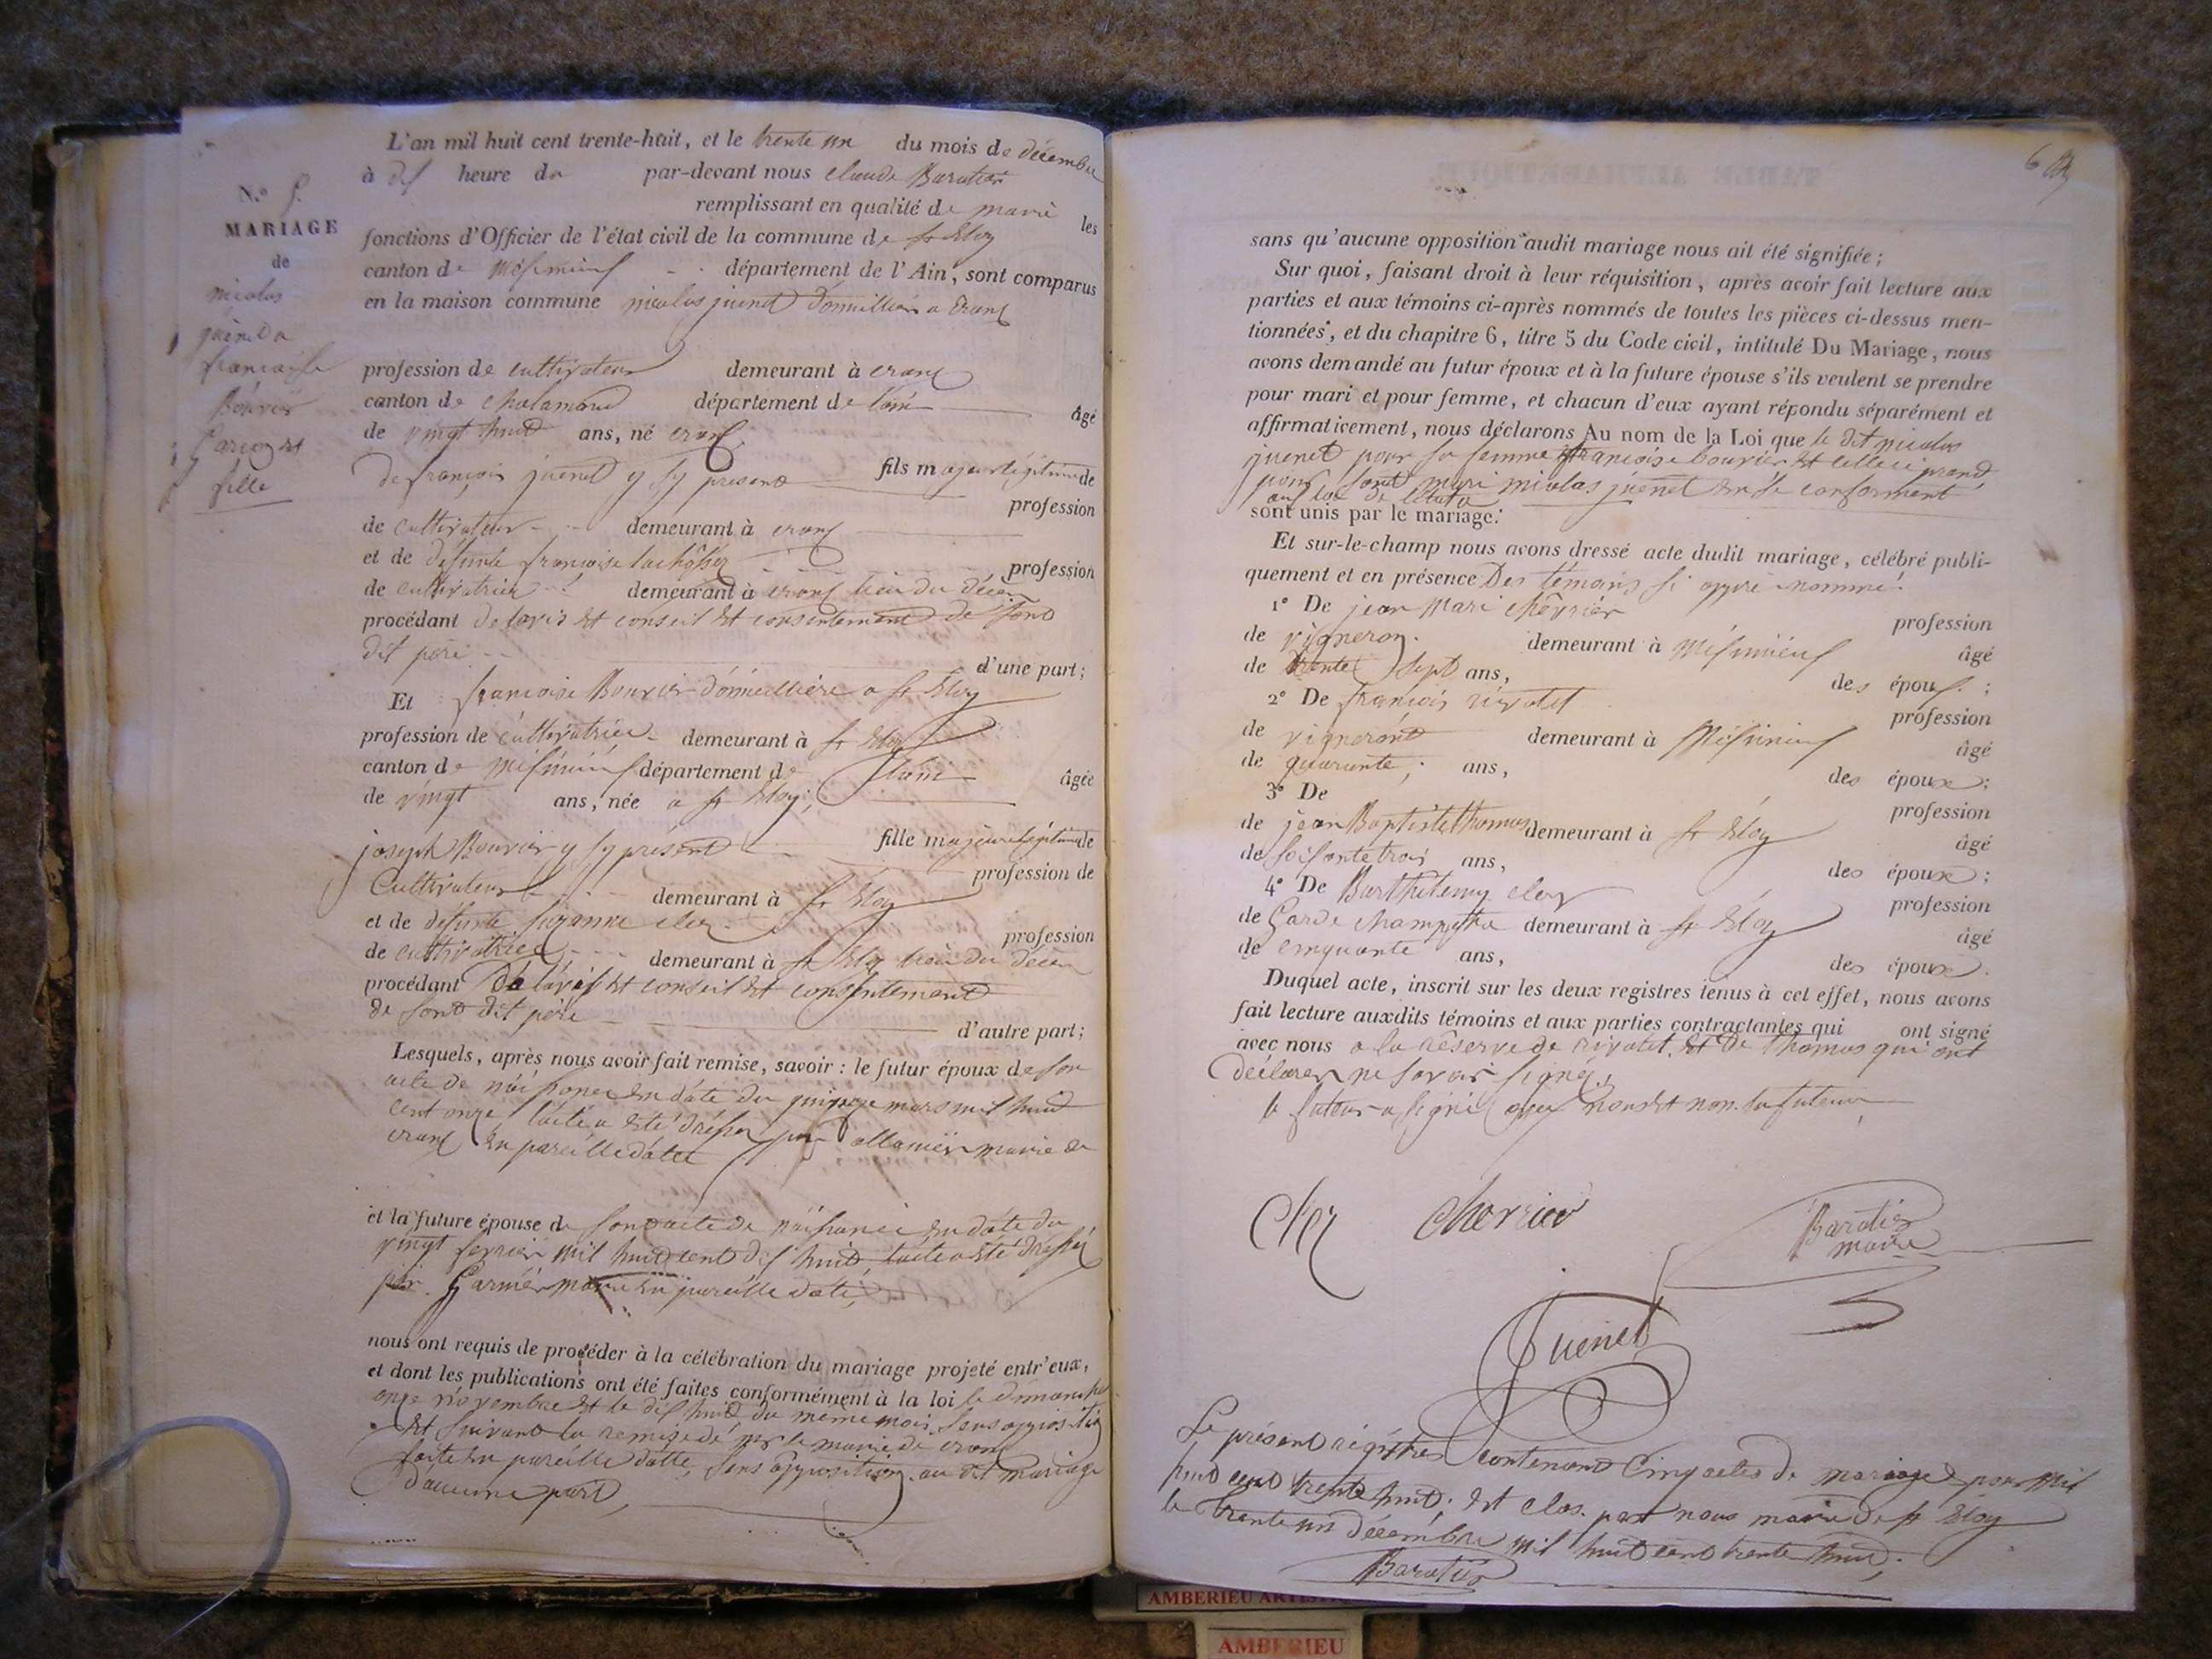 N.o 5.
MARIAGE
de
nicolas
juenet a
francoise
Bouvier
Garcon et
fille
L'an mil huit cent trente-huit, et le trente un du mois de décembre
à dix heure du par-devant nous claude Baratier
remplissant en qualité de maire les
fonctions d'Officier de l'état civil de la commune de st Eloy
canton de Meximieux département de l'Ain, sont comparus
en la maison commune nicolas juenet domicillier a crans
profession de cultivateur demeurant à crans
canton de chalamond département de l'ain âgé
de vingt huit ans, né crans
de françois juenet y sy present fils majeur légitime de
profession
de cultivateur demeurant à crans
et de défunte francoise
profession
de cultivatrice demeurant à crans lieu du décès
procédant de lavis et conseil et consentement de sont
dit pere
d'une part;
Et francoise Bouvier domicillière a st Eloy
profession de cultivatrice demeurant à st Eloy
canton de méximieux département de l'ain âgée
de vingt ans, née a st Eloy;
joseph Bouvier y sy présent fille majeure légitime de
profession de
Cultivateur demeurant à st Eloy
et de défunte suzanne cler
profession
de cultivatrice demeurant à st Eloy lieu du décès
procédant De lavis et conseil et consentement
de sont dit père
d'autre part;
Lesquels, après nous avoir fait remise, savoir : le futur époux de son
acte de naissance en date du quinze mars mil huit
cent onze lacte a été drésser par allamier maire de
crans en pareille datte
et la future épouse de son acte de naissance en date du
vingt fevrier mil huit cent dix huit, lacte a été dréssé
par Garnier maire en pareille date,
nous ont requis de procéder à la célébration du mariage projeté entr'eux,
et dont les publications ont été faites conformément à la loi le dimanche
onze novembre et le dix huit du même mois sens opposition
et suivant la remise de par le maire de crans
faite en pareille datte, sens opposition au dit mariage
d'aucune part,
6
sans qu'aucune opposition audit mariage nous ait été signifiée;
Sur quoi, faisant droit à leur réquisition, après avoir fait lecture aux
parties et aux témoins ci-après nommés de toutes les pièces ci-dessus men-
tionnées, et du chapitre 6, titre 5 du Code civil, intitulé Du Mariage, nous
avons demandé au futur époux et à la future épouse s'ils veulent se prendre
pour mari et pour femme, et chacun d'eux ayant répondu séparément et
affirmativement, nous déclarons Au nom de la Loi que le dit nicolas
juenet pour sa femme francoise bouvier et celle ci prend
pour sont mari nicolas juenet en se conforment
aux loi de létat
sont unis par le mariage.
Et sur-le-champ nous avons dressé acte dudit mariage, célébré publi-
quement et en présence Des témoins si apprè nommé.
1o De jean Mari chêvrier
profession
de vigneron. demeurant à Méximieux âgé
de trente sept ans, des époux ;
2o De françois rivolet
profession
de vigneront demeurant à Méximieux âgé
de quarante ; ans, des époux ;
3o De
profession
de jean Baptiste thomas demeurant à st Eloy âgé
de soisante trois ans, des époux ;
4o De Barthélemy cler
profession
de Garde champetre demeurant à st Eloy âgé
de cinquante ans, des époux .
Duquel acte, inscrit sur les deux registres tenus à cet effet, nous avons
fait lecture auxdits témoins et aux parties contractantes qui ont signé
avec nous a la réserve de rivolet et De thomas qui ont
déclarer ne savoir signé.
le futeur a signé avec nous et non la futeure
Cler chevrier Baratier
maire
Juenet
Le présent régistre contenant Cinq actes de mariage pour mil
huit cent trente huit; et clos par nous maire de st Eloy
le trente un décémbre mil huit cent trente huit.
Baratier
AMBERIEU
AMBERIEU